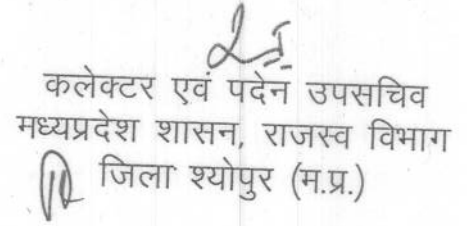 कलेक्टर एवं पदेन उपसचिव
मध्यप्रदेश शासन, राजस्व विभाग
जिला श्योपुर (म.प्र.)